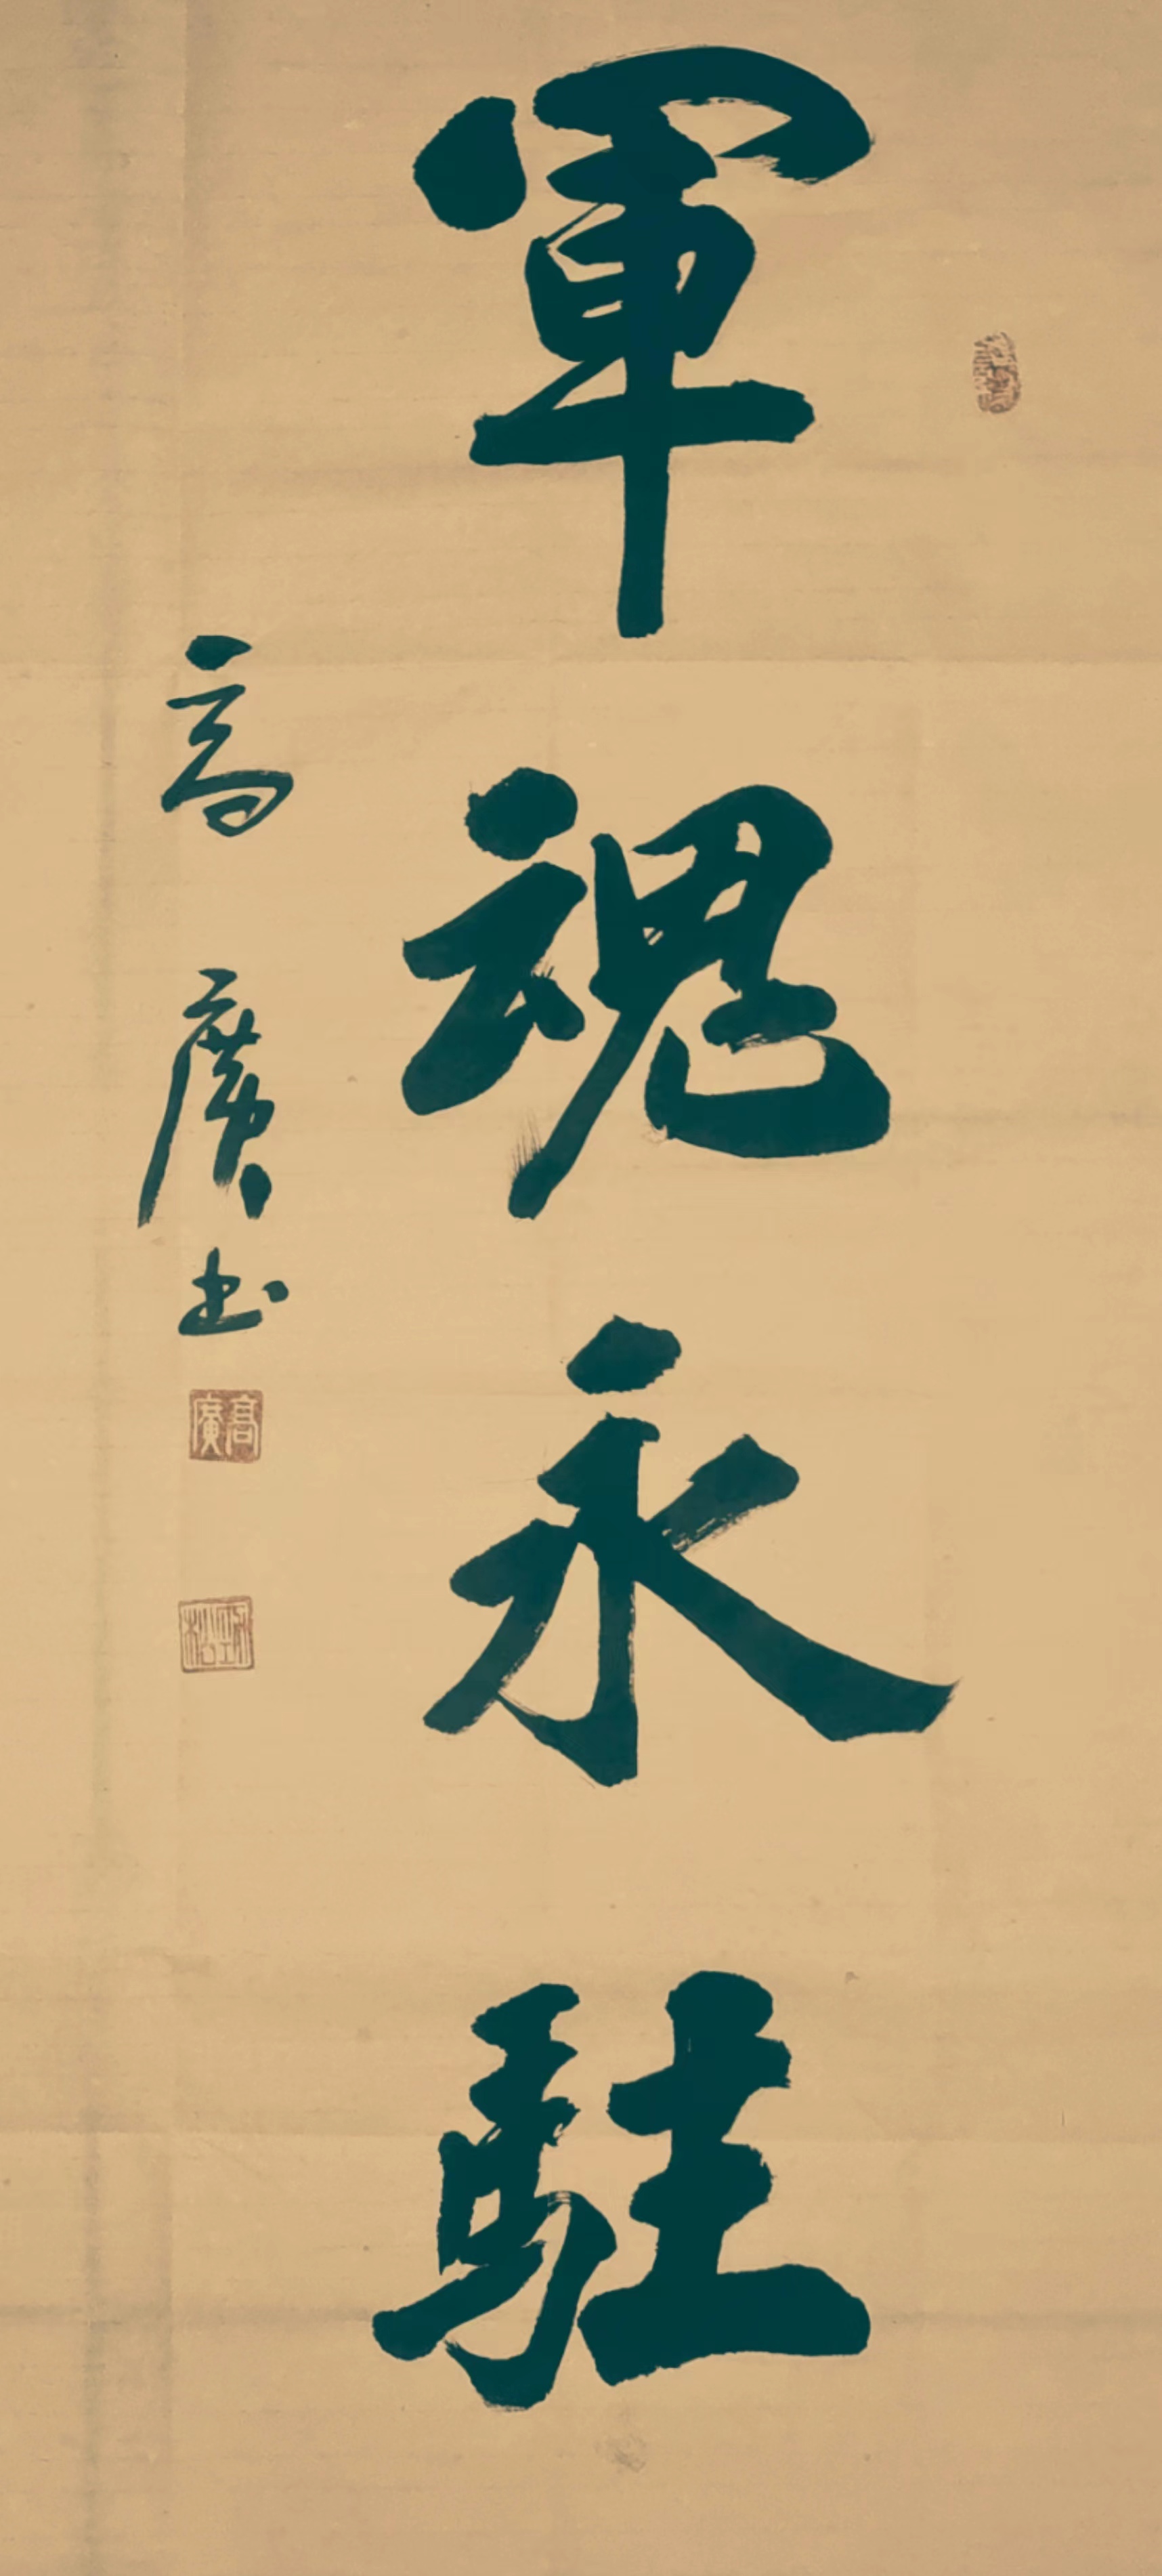 軍魂永駐
高廣书
高廣